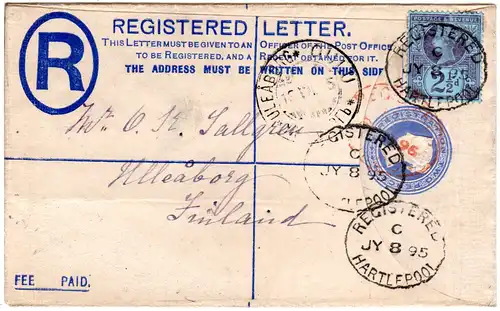 REGISTERED LETTER.
THIS LETTER MUST BE GIVEN TO AN OFFICER OF THE POST OFFICE
TO BE REGISTERED, AND A RECEIPT OBTAINED FOR IT.
THE ADDRESS MUST BE WRITTEN ON THIS SIDE
R
POSTAGE & REVENUE
2½ 2½
REGISTERED
C
JY 8
HARTLEPOOL
ULEÅBORG
Mr O. K. Sallgren
Ulleåborg
Finland
REGISTERED
C
JY 8 95
HARTLEPOOL
REGISTERED
C
JY 8 95
HARTLEPOOL
FEE PAID.